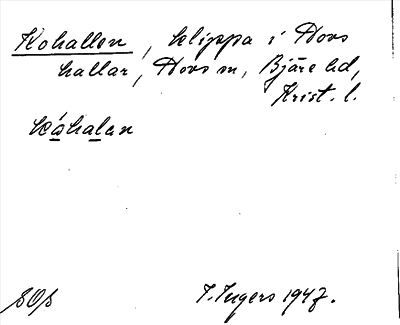 Kohallen, klippa i Hovs
hallar, Hovs sn, Bjäre hd,
Krist. l.
kóhalan
SOs
I. Ingers 1947.